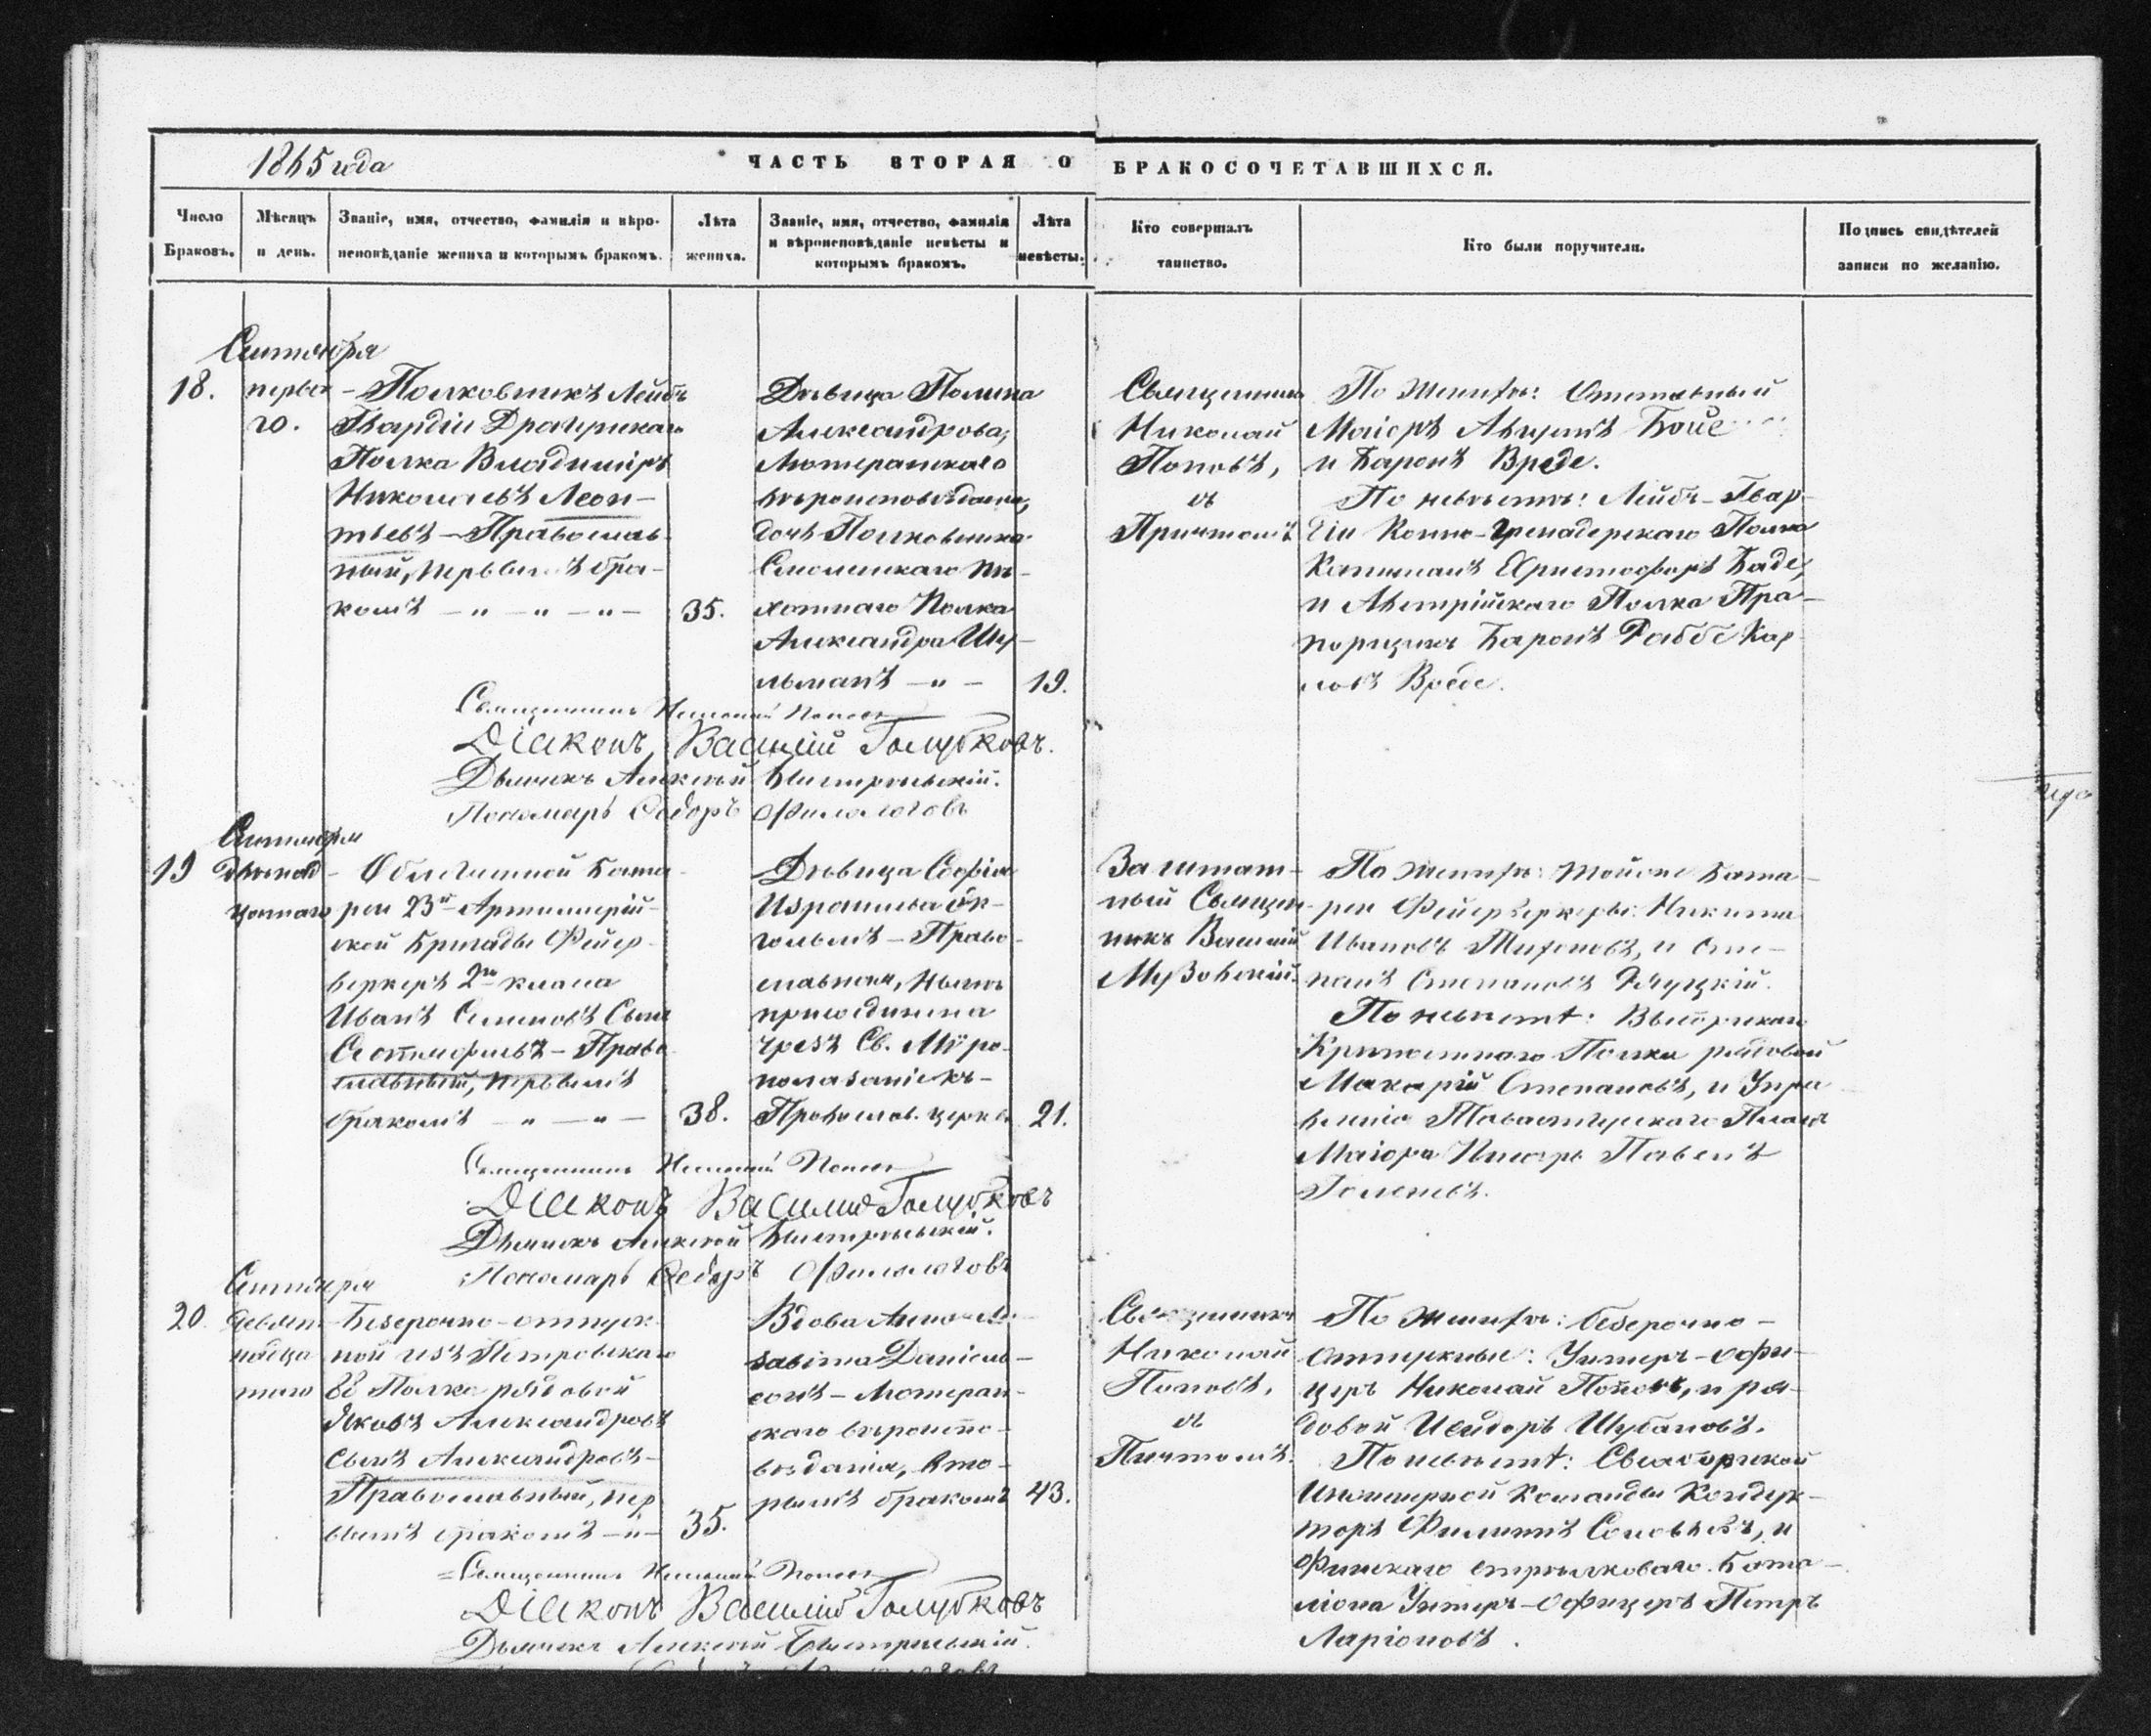 1865 года
ЧАСТЬ ВТОРАЯ О БРАКОСОЧЕТАВШИХСЯ.
Число Браковъ.
Мѣсяцъ и день.
Званіе, имя, отчество, фамилія и вѣро-
исповѣданіе жениха и которымъ бракомъ.
Лѣта жениха.
Званіе, имя, отчество, фамилія
и вѣроисповѣданіе невѣсты и
которымъ бракомъ.
Лѣта невѣсты.
Кто совершалъ таинство.
Кто были поручители.
Подпись свидѣтелей
записи по желанію.
Сентября
18.
перва-
го.
Полковникъ Лейбъ
Гвардіи Драгунскаго
Полка Владиміръ
Николаевъ Леон-
тьевъ - Православ-
ный, первымъ бра-
комъ - " - " - " -
35.
Дѣвица Полина
Александрова,
Лютеранскаго
вѣроисповѣданія,
дочь Полковника
Смоленскаго Пѣ-
хотнаго Полка
Александра Шу-
льманъ - " -
19.
Священникъ
Николай
Поповъ,
съ
Причтомъ
По женихѣ: Отставный
Маіоръ Августъ Бойе
и Баронъ Вреде.
По невѣстѣ: Лейбъ-Гвар-
діи Конно-Гренадерскаго Полка
Капитанъ Христофоръ Баде,
и Австрійскаго Полка Пра-
порщикъ Баронъ Раббе Кар-
ловъ Вреде.
Священникъ Николай Поповъ
Діаконъ Василій Голубковъ.
Дьячекъ Алексѣй Быстриевскій.
Пономарь Ѳедоръ Филологовъ
Сентября
19
двѣнад-
цатаго
Облегченной Бата-
реи 23й Артиллерій-
ской Бригады Фейер-
веркеръ 2го класса
Иванъ Семеновъ Сынъ
Право-
славный, первымъ
бракомъ - " - " -
38.
Дѣвица Софія
Православная, нынѣ
присоединена
чрезъ Св. Мѵро-
помазаніе къ
Православ. церкви
21.
Заштат-
ный Священ-
никъ Василій
Мусовскій.
По женихѣ: тойже Бата-
реи Фейерверкеры: Никита
Ивановъ Тихоновъ, и Сте-
панъ Степановъ
По невѣстѣ: Выборгскаго
Крѣпостнаго Полка рядовой
Макарій Степановъ, и Упра-
вленія Тавастгускаго Плацъ
Маіора Писарь Павелъ
Священникъ Николай Поповъ
Діаконъ Василій Голубковъ
Дьячекъ Алексѣй Быстриевскій.
Пономарь Ѳедоръ Филологовъ
Сентября
20
девят-
надца-
таго
Безсрочно-отпуск-
ной изъ Петровскаго
Полка рядовой
Яковъ Александровъ
сынъ Александровъ -
Православный, пер-
вымъ бракомъ - " -
35.
Вдова Анна Ели-
савета Даніель-
сонъ - Лютеран-
скаго вѣроиспо-
вѣданія, вто-
рымъ бракомъ
43.
Священникъ
Николай
Поповъ,
съ
Причтомъ.
По женихѣ: безсрочно-
отпускные: Унтеръ-офи-
церъ Николай Поповъ, и ря-
довой Исидоръ Шубановъ.
По невѣстѣ: Свеаборгской
Инженерной Команды Кондук-
торъ Филиппъ Соловьевъ, и
Финскаго стрѣлковаго бата-
ліона Унтеръ-Офицеръ Петръ
Ларіоновъ.
Священникъ Николай Поповъ
Діаконъ Василій Голубковъ
Дьячекъ Алексѣй Быстриевскій.